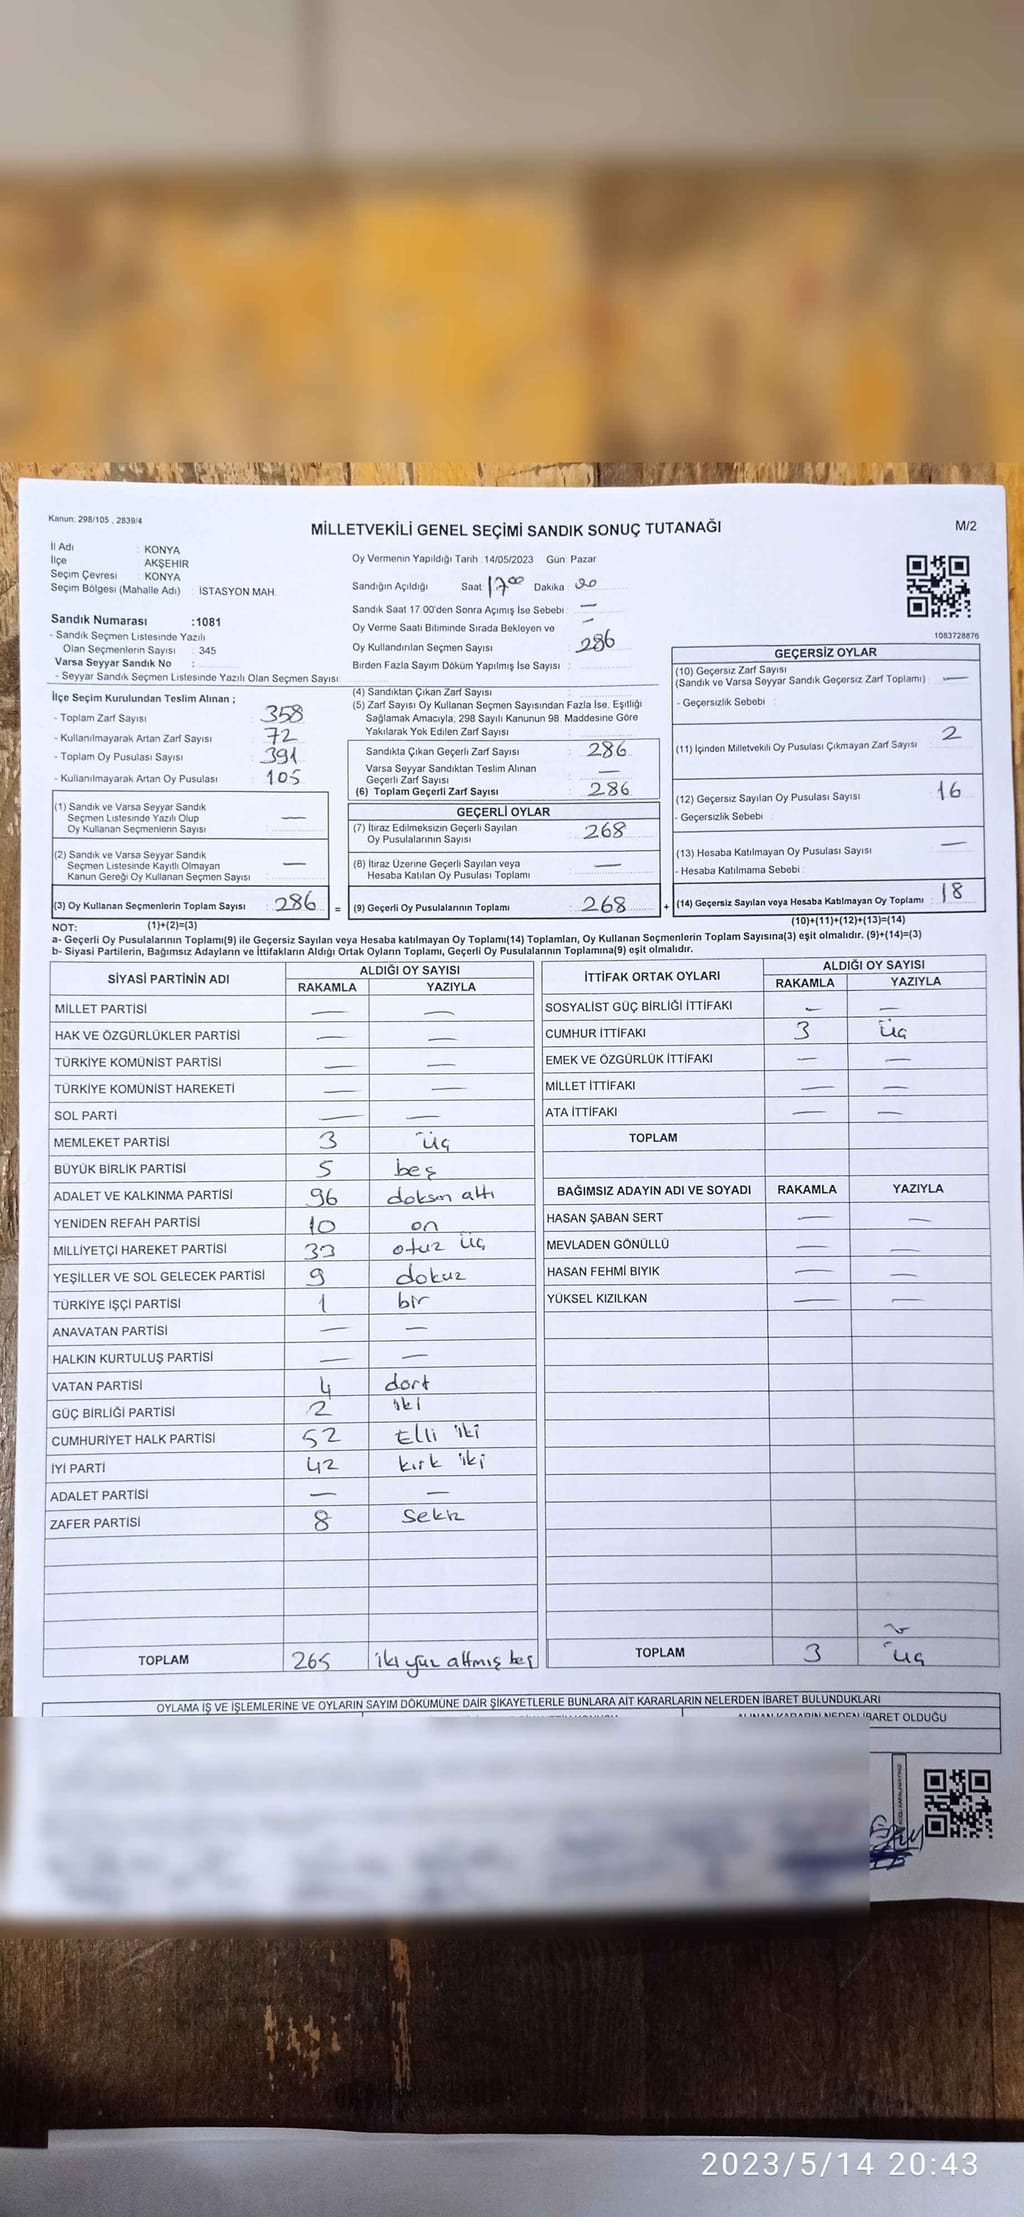 Kanun: 298/105 , 2839/4
MİLLETVEKİLİ GENEL SEÇİMİ SANDIK SONUÇ TUTANAĞI
M/2
İl Adı : KONYA
İlçe AKŞEHİR
Seçim Çevresi : KONYA
Seçim Bölgesi (Mahalle Adı) : İSTASYON MAH.
Oy Vermenin Yapıldığı Tarih : 14/05/2023 Gün: Pazar
Sandığın Açıldığı Saat: 17 00 Dakika :
Sandık Saat 17.00'den Sonra Açımış İse Sebebi : —
Oy Verme Saati Bitiminde Sırada Bekleyen ve —
Oy Kullandırılan Seçmen Sayısı : 286
Birden Fazla Sayım Döküm Yapılmış İse Sayısı :
1083728876
Sandık Numarası :1081
- Sandık Seçmen Listesinde Yazılı
Olan Seçmenlerin Sayısı : 345
Varsa Seyyar Sandık No :
- Seyyar Sandık Seçmen Listesinde Yazılı Olan Seçmen Sayısı:
İlçe Seçim Kurulundan Teslim Alınan ;
- Toplam Zarf Sayısı : 358
- Kullanılmayarak Artan Zarf Sayısı : 72
- Toplam Oy Pusulası Sayısı : 391
- Kullanılmayarak Artan Oy Pusulası : 105
(1) Sandık ve Varsa Seyyar Sandık
Seçmen Listesinde Yazılı Olup
Oy Kullanan Seçmenlerin Sayısı : —
(2) Sandık ve Varsa Seyyar Sandık
Seçmen Listesinde Kayıtlı Olmayan
Kanun Gereği Oy Kullanan Seçmen Sayısı : —
(3) Oy Kullanan Seçmenlerin Toplam Sayısı : 286 =
(4) Sandıktan Çıkan Zarf Sayısı :
(5) Zarf Sayısı Oy Kullanan Seçmen Sayısından Fazla İse, Eşitliği
Sağlamak Amacıyla, 298 Sayılı Kanunun 98. Maddesine Göre
Yakılarak Yok Edilen Zarf Sayısı :
Sandıkta Çıkan Geçerli Zarf Sayısı : 286
Varsa Seyyar Sandıktan Teslim Alınan
Geçerli Zarf Sayısı : —
(6) Toplam Geçerli Zarf Sayısı : 286
GEÇERLİ OYLAR
(7) İtiraz Edilmeksizin Geçerli Sayılan
Oy Pusulalarının Sayısı : 268
(8) İtiraz Üzerine Geçerli Sayılan veya
Hesaba Katılan Oy Pusulası Toplamı : —
(9) Geçerli Oy Pusulalarının Toplamı : 268 +
GEÇERSİZ OYLAR
(10) Geçersiz Zarf Sayısı
(Sandık ve Varsa Seyyar Sandık Geçersiz Zarf Toplamı) : —
- Geçersizlik Sebebi :
(11) İçinden Milletvekili Oy Pusulası Çıkmayan Zarf Sayısı : 2
(12) Geçersiz Sayılan Oy Pusulası Sayısı : 16
- Geçersizlik Sebebi :
(13) Hesaba Katılmayan Oy Pusulası Sayısı : —
- Hesaba Katılmama Sebebi :
(14) Geçersiz Sayılan veya Hesaba Katılmayan Oy Toplamı : 18
NOT: (1)+(2)=(3)
(10)+(11)+(12)+(13)=(14)
a- Geçerli Oy Pusulalarının Toplamı(9) ile Geçersiz Sayılan veya Hesaba katılmayan Oy Toplamı(14) Toplamları, Oy Kullanan Seçmenlerin Toplam Sayısına(3) eşit olmalıdır. (9)+(14)=(3)
b- Siyasi Partilerin, Bağımsız Adayların ve İttifakların Aldığı Ortak Oyların Toplamı, Geçerli Oy Pusulalarının Toplamına(9) eşit olmalıdır.
SİYASİ PARTİNİN ADI ALDIĞI OY SAYISI
RAKAMLA YAZIYLA
MİLLET PARTİSİ — —
HAK VE ÖZGÜRLÜKLER PARTİSİ — —
TÜRKİYE KOMÜNİST PARTİSİ — —
TÜRKİYE KOMÜNİST HAREKETİ — —
SOL PARTİ — —
MEMLEKET PARTİSİ 3 üç
BÜYÜK BİRLİK PARTİSİ 5 beş
ADALET VE KALKINMA PARTİSİ 96 doksan altı
YENİDEN REFAH PARTİSİ 10 on
MİLLİYETÇİ HAREKET PARTİSİ 33 otuz üç
YEŞİLLER VE SOL GELECEK PARTİSİ 9 dokuz
TÜRKİYE İŞÇİ PARTİSİ 1 bir
ANAVATAN PARTİSİ — —
HALKIN KURTULUŞ PARTİSİ — —
VATAN PARTİSİ 4 dört
GÜÇ BİRLİĞİ PARTİSİ 2 iki
CUMHURİYET HALK PARTİSİ 52 Elli iki
İYİ PARTİ 42 kırk iki
ADALET PARTİSİ — —
ZAFER PARTİSİ 8 Sekiz
TOPLAM 265 iki yüz altmış beş
İTTİFAK ORTAK OYLARI ALDIĞI OY SAYISI
RAKAMLA YAZIYLA
SOSYALİST GÜÇ BİRLİĞİ İTTİFAKI — —
CUMHUR İTTİFAKI 3 üç
EMEK VE ÖZGÜRLÜK İTTİFAKI — —
MİLLET İTTİFAKI — —
ATA İTTİFAKI — —
TOPLAM
BAĞIMSIZ ADAYIN ADI VE SOYADI RAKAMLA YAZIYLA
HASAN ŞABAN SERT — —
MEVLADEN GÖNÜLLÜ — —
HASAN FEHMİ BIYIK — —
YÜKSEL KIZILKAN — —
TOPLAM 3 üç
OYLAMA İŞ VE İŞLEMLERİNE VE OYLARIN SAYIM DÖKÜMÜNE DAİR ŞİKAYETLERLE BUNLARA AİT KARARLARIN NELERDEN İBARET BULUNDUKLARI
ALINAN KARARIN NEDEN İBARET OLDUĞU
2023/5/14 20:43